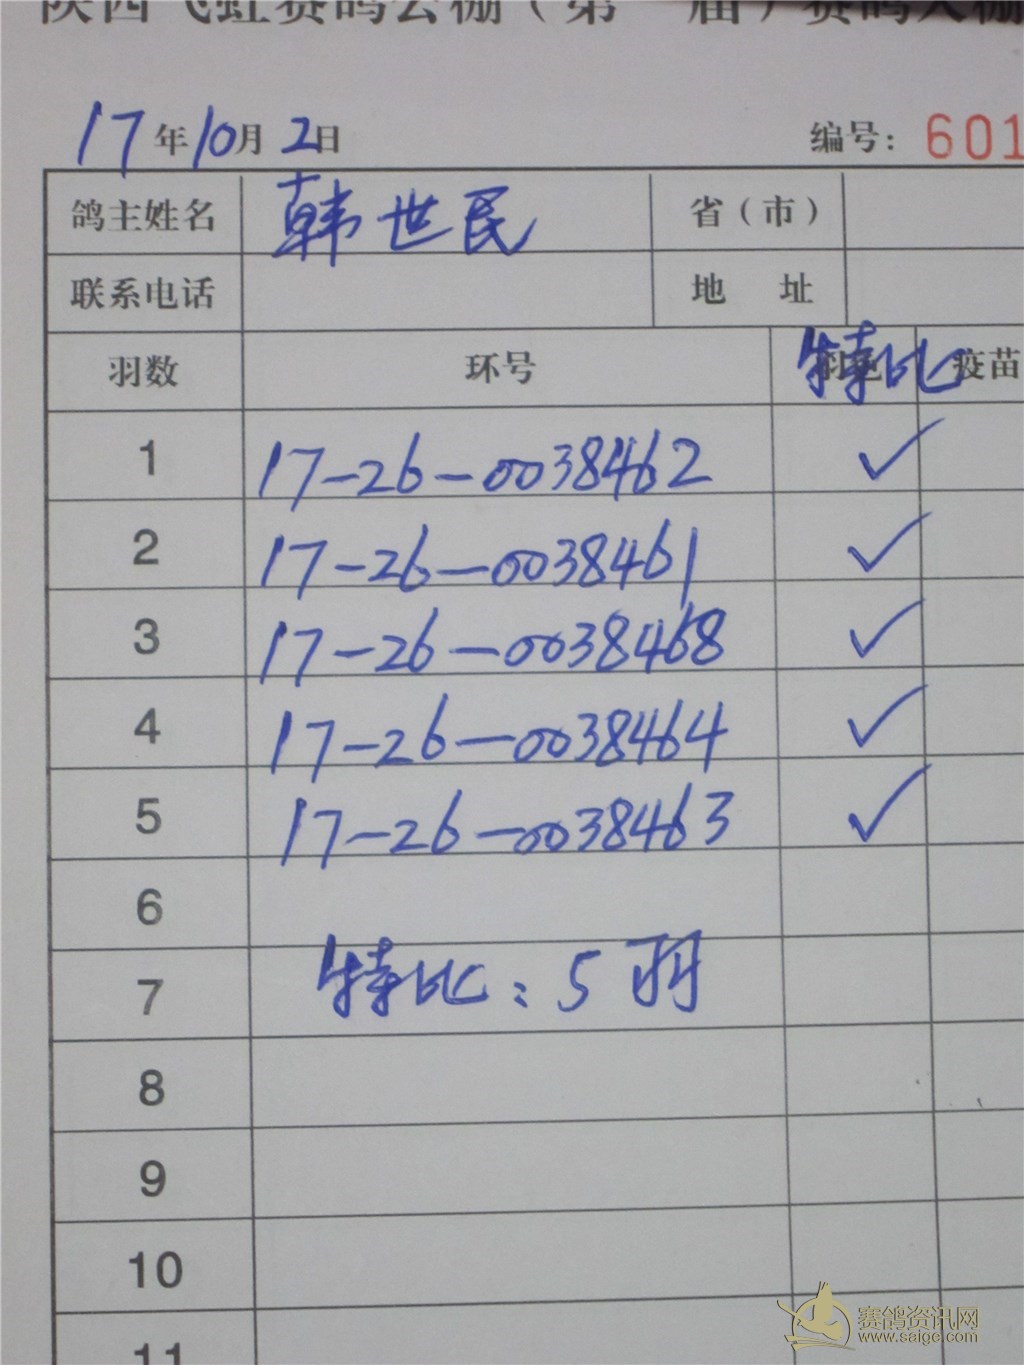 陕西飞虹赛鸽公棚（第 届）赛鸽入棚
17年10月2日 编号：601
鸽主姓名 韩世民 省（市）
联系电话 地 址
羽数 环号 特比 疫苗
1 17-26-0038462 ✓
2 17-26-0038461 ✓
3 17-26-0038468 ✓
4 17-26-0038464 ✓
5 17-26-0038463 ✓
6
7 特比：5羽
8
9
10
11
赛鸽资讯网
www.saige.com